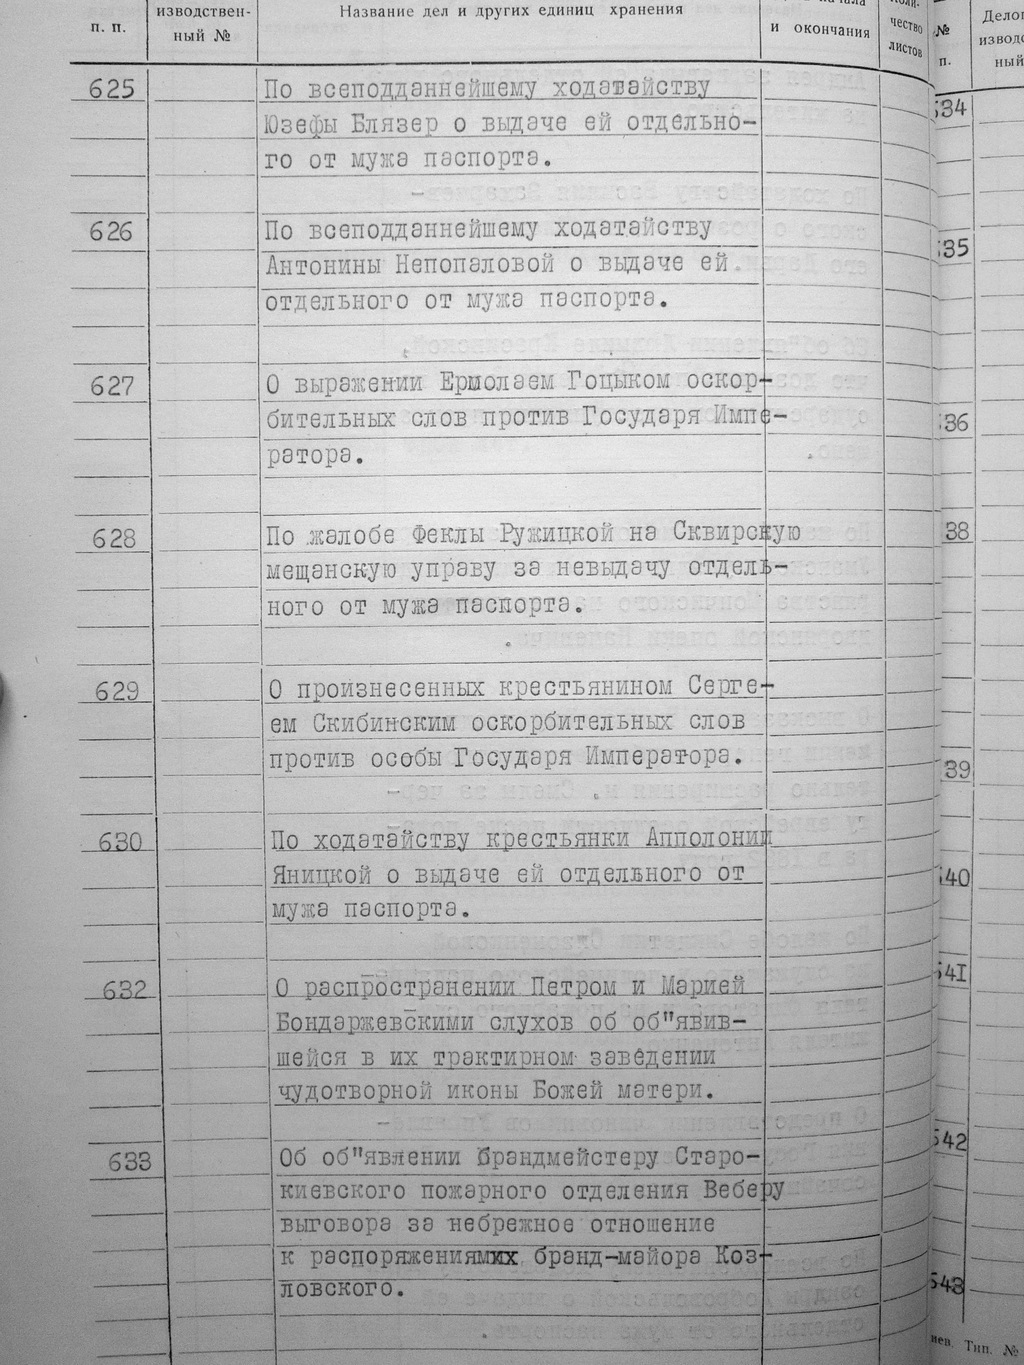 п. п.
изводствен-
ный №
Название дел и других единиц хранения
и окончания
чество
листов
№
п.
ный
625
По всеподданнейшему ходатайству
Юзефы Блязер о выдаче ей отдельно-
го от мужа паспорта.
626
По всеподданнейшему ходатайству
Антонины Непопаловой о выдаче ей
отдельного от мужа паспорта.
627
О выражении Ермолаем Гоцыком оскор-
бительных слов против Государя Импе-
ратора.
628
По жалобе Феклы Ружицкой на Сквирскую
мещанскую управу за невыдачу отдель-
ного от мужа паспорта.
629
О произнесенных крестьянином Серге-
ем Скибинским оскорбительных слов
против особы Государя Императора.
630
По ходатайству крестьянки Апполонии
Яницкой о выдаче ей отдельного от
мужа паспорта.
632
О распространении Петром и Марией
Бондаржевскими слухов об об"явив-
шейся в их трактирном заведении
чудотворной иконы Божей матери.
633
Об об"явлении брандмейстеру Старо-
киевского пожарного отделения Веберу
выговора за небрежное отношение
к распоряжениям бранд-майора Коз-
ловского.
34
35
36
38
39
40
541
542
543
Тип. №